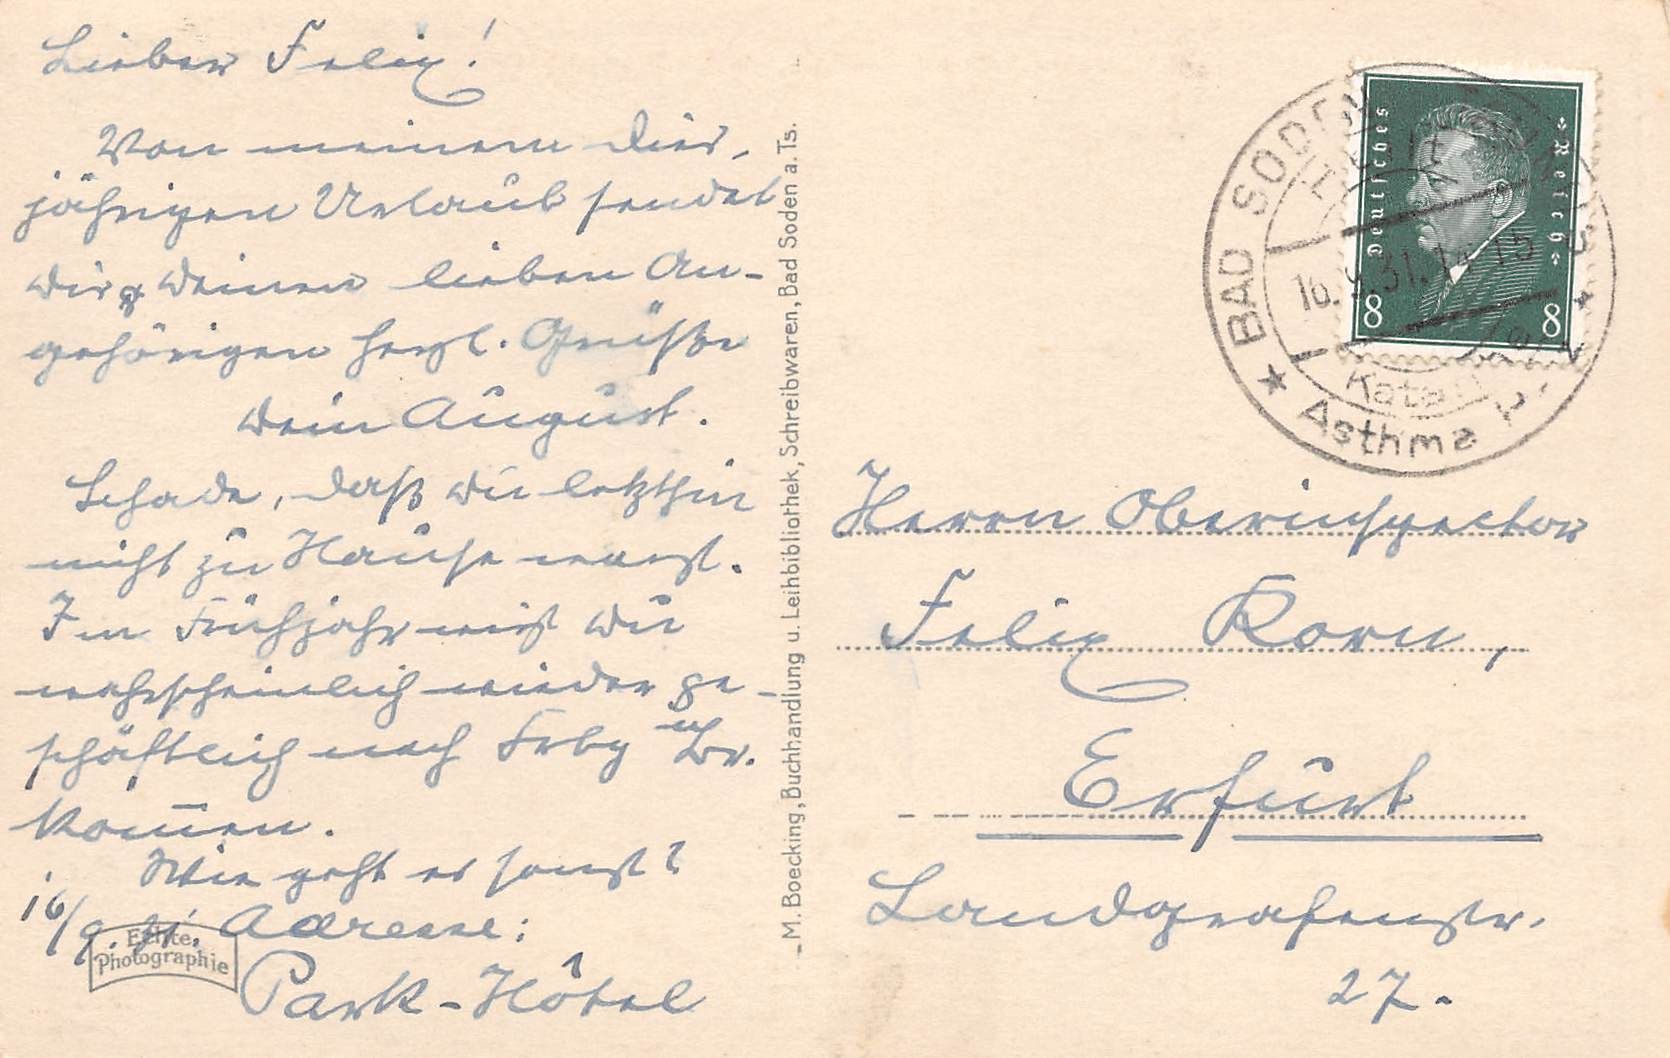 Lieber Felix!
Von meinem dies-
jährigen Urlaub sendet
Dir & Deinen lieben An-
gehörigen herzl. Grüße
Dein August.
Schade, daß Du letzthin
nicht zu Hause warst.
Im Frühjahr wirst Du
wahrscheinlich wieder ge-
schäftlich nach
kom̄en.
Wie geht es sonst?
16/9. 31. Adresse:
Park-Hôtel
Echte
Photographie
M. Boecking, Buchhandlung u. Leihbibliothek, Schreibwaren, Bad Soden a. Ts.
Deutsches Reich
8 8
BAD SODEN
16.9.31.14-15
Katarrh
Asthma
Herrn Oberinspector
Felix Korn,
Erfurt
Landgrafenstr.
27.